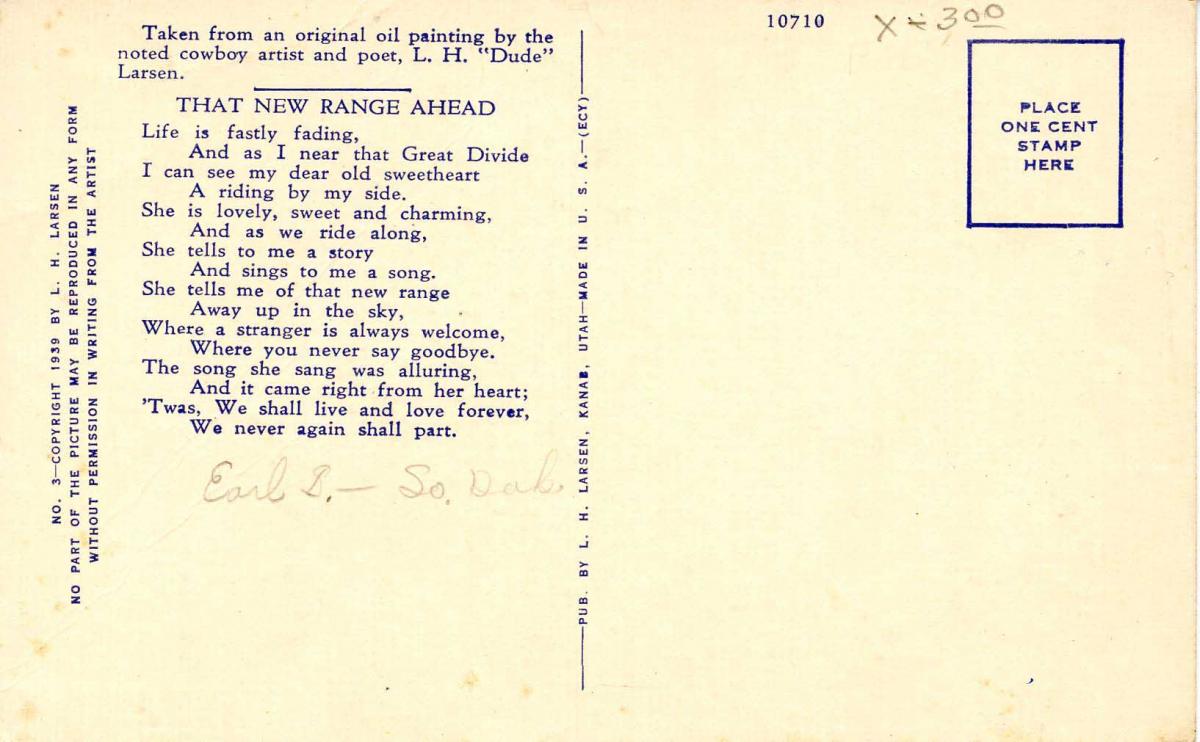 10710
X – 3 00
Taken from an original oil painting by the
noted cowboy artist and poet, L. H. "Dude"
Larsen.
THAT NEW RANGE AHEAD
Life is fastly fading,
And as I near that Great Divide
I can see my dear old sweetheart
A riding by my side.
She is lovely, sweet and charming,
And as we ride along,
She tells to me a story
And sings to me a song.
She tells me of that new range
Away up in the sky,
Where a stranger is always welcome,
Where you never say goodbye.
The song she sang was alluring,
And it came right from her heart;
'Twas, We shall live and love forever,
We never again shall part.
Earl B. — So. Dak
NO. 3—COPYRIGHT 1939 BY L. H. LARSEN
NO PART OF THE PICTURE MAY BE REPRODUCED IN ANY FORM
WITHOUT PERMISSION IN WRITING FROM THE ARTIST
PUB. BY L. H. LARSEN, KANAB, UTAH—MADE IN U. S. A.—(ECY)
PLACE
ONE CENT
STAMP
HERE